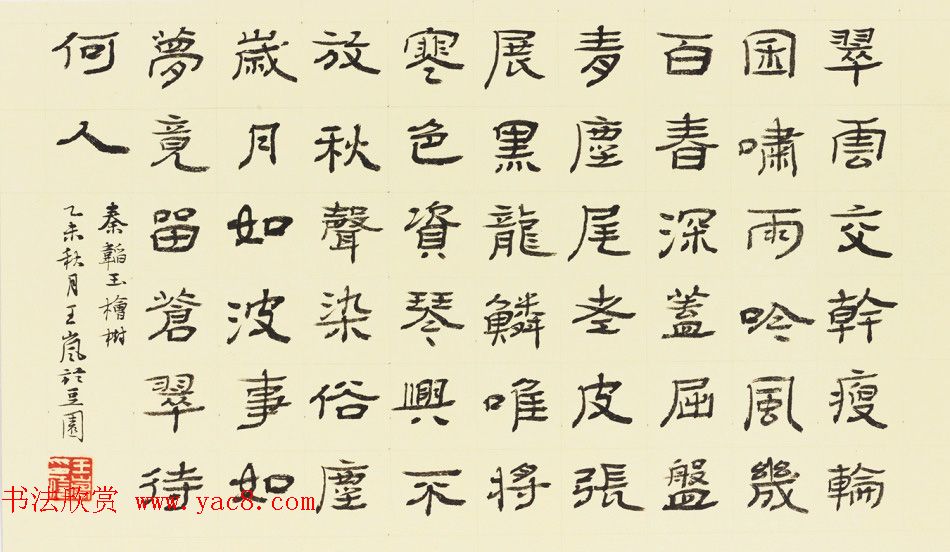 翠雲交幹瘦輪
囷嘯雨吟風幾
百春深蓋屈盤
青塵尾老皮張
展黑龍鱗唯將
寒色資琴興不
放秋聲染俗塵
歲月如波事如
夢竟留蒼翠待
何人
秦韜玉檜樹
乙未秋月王嵐於豆園
书法欣赏 www.yac8.com